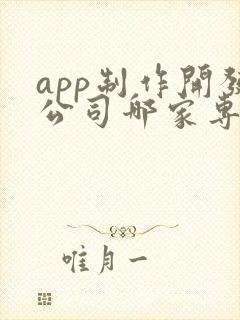 app制作開發
公司那家專
唯月一